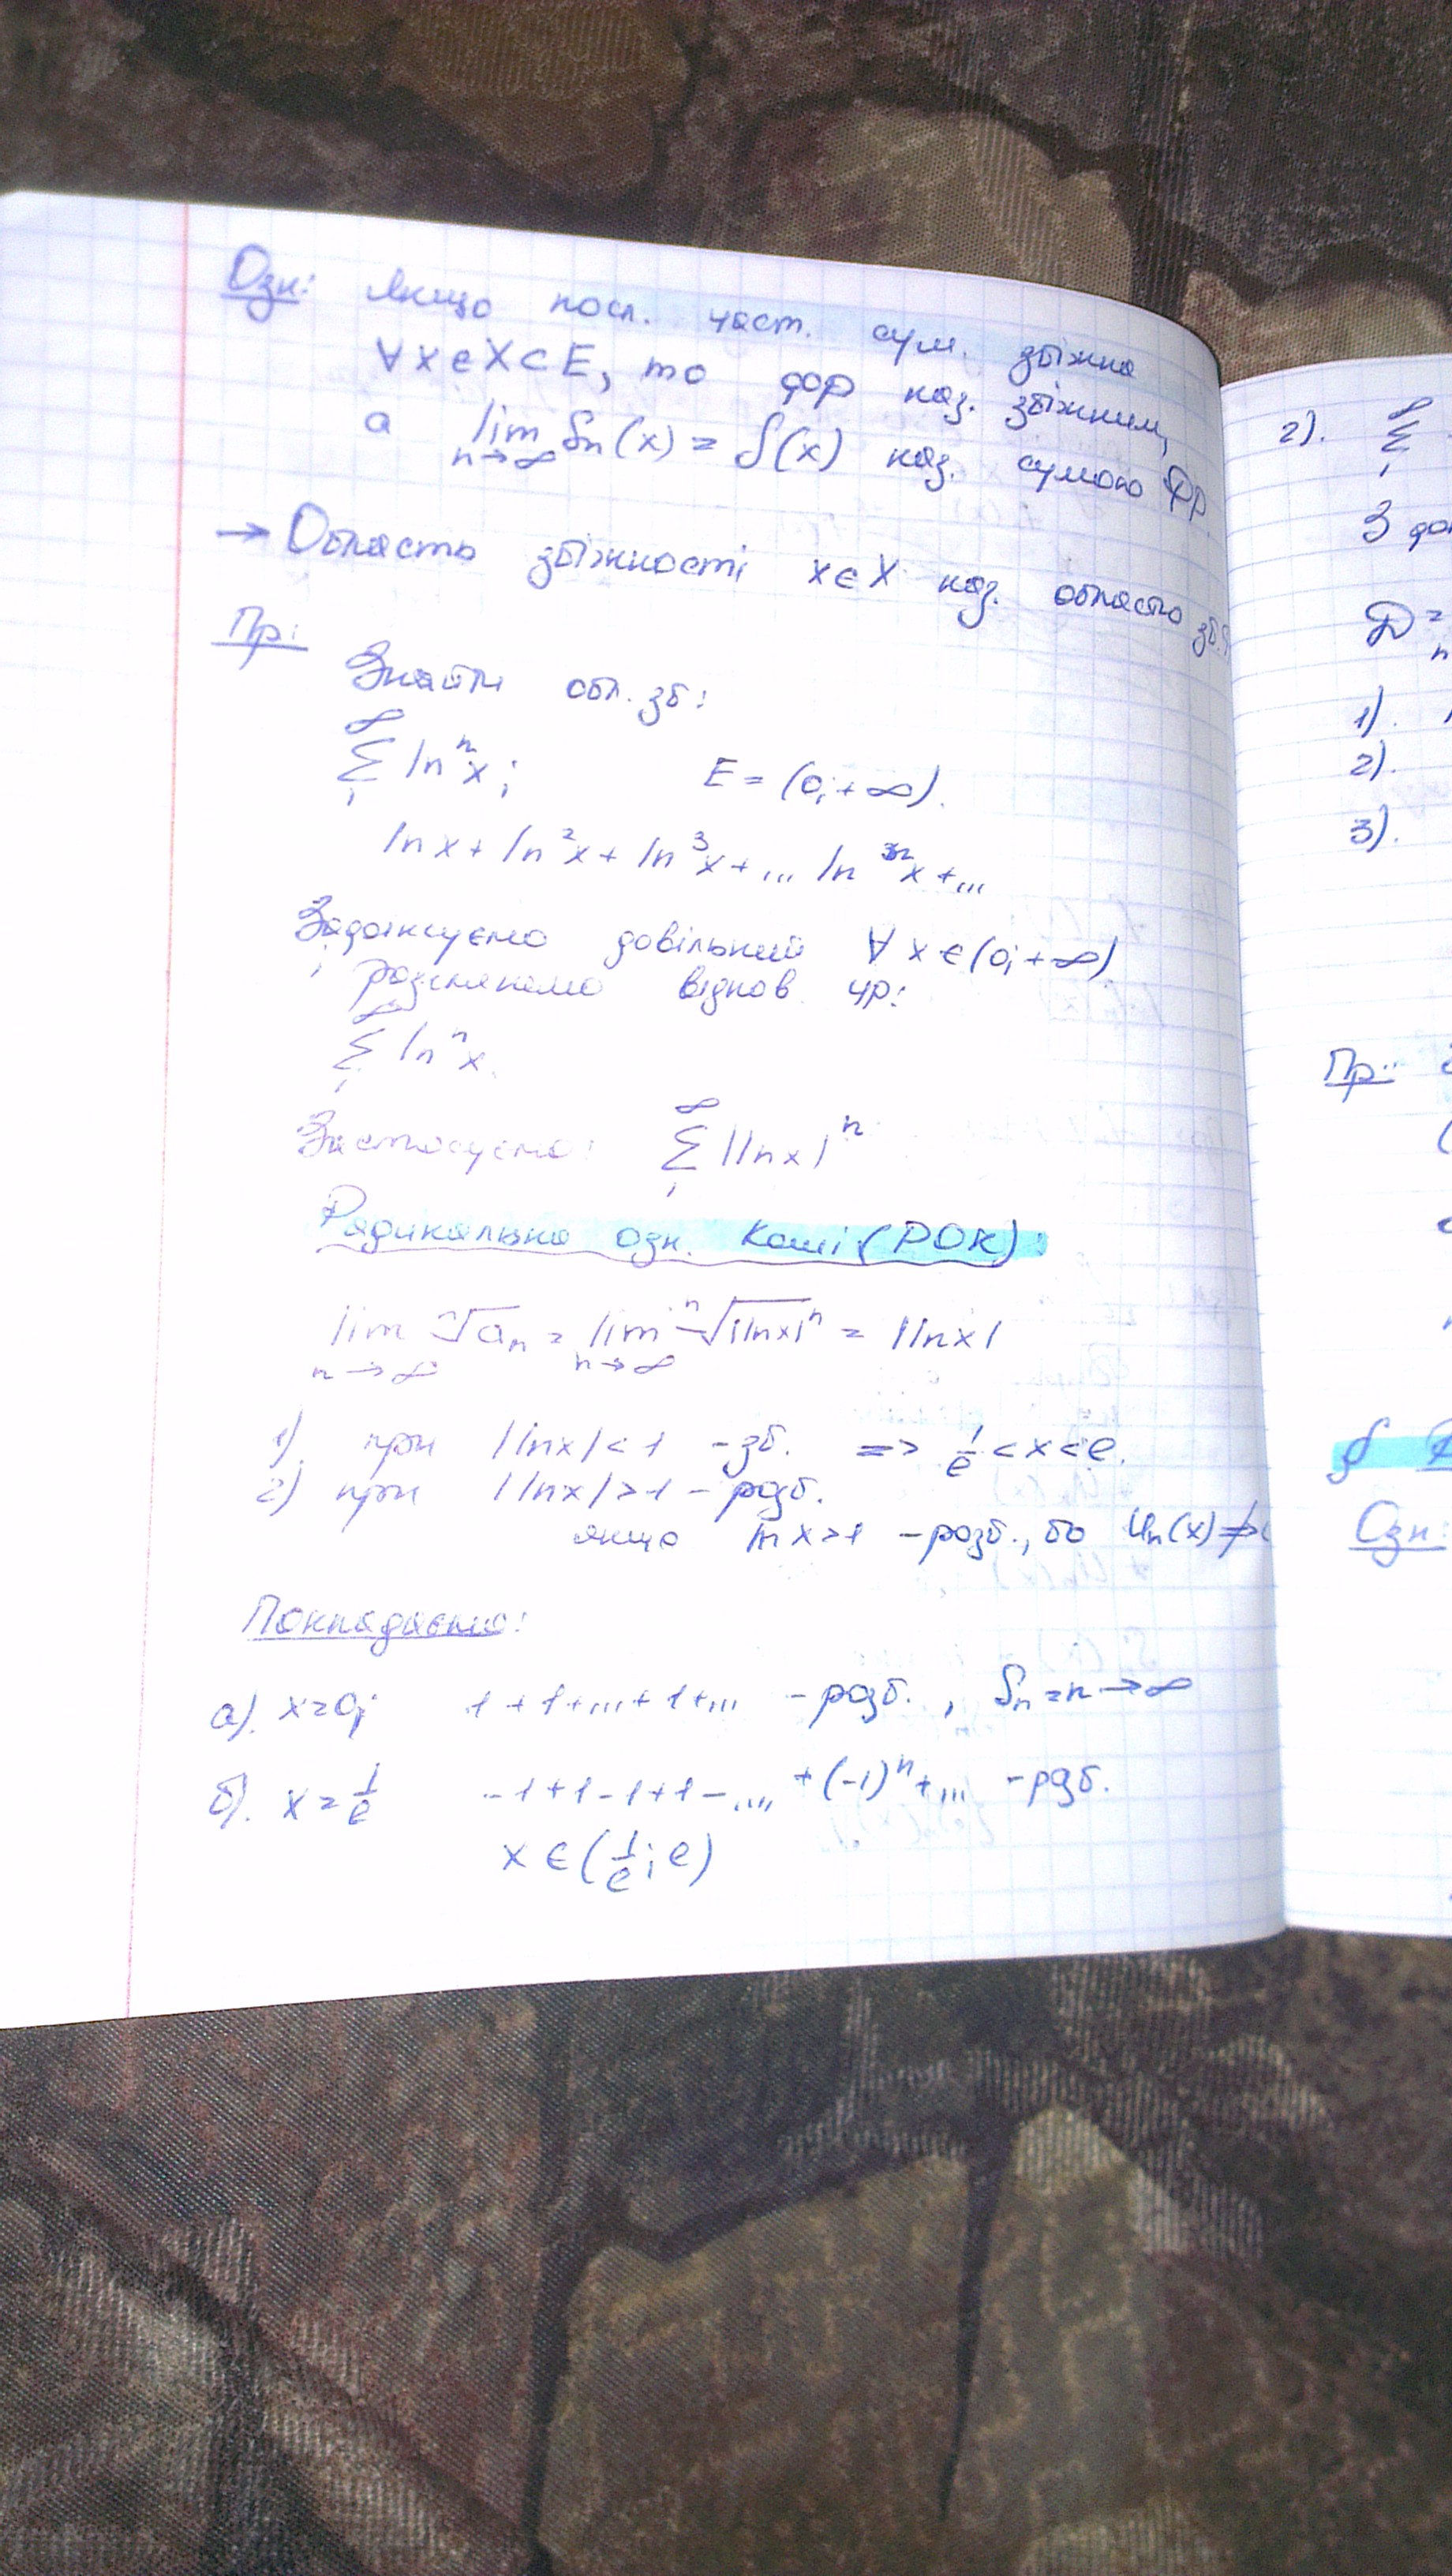 Озн: Якщо посл. част. сум. збіжна
∀x∈X⊂E, то фр наз. збіжним,
а lim Sn(x) = S(x) наз. сумою Фр
n→∞
→ Область збіжності x∈X наз. областю зб.
Пр:
Знайти обл. зб:
∞
Σ lnⁿx; E = (0;+∞).
1
ln x + ln²x + ln³x + ... lnⁿx + ...
Задаксуємо довільний ∀ x ∈ (0;+∞)
і розглянемо віднов чр:
∞
Σ lnⁿx.
1
Застосуємо: ∞
Σ |lnx|ⁿ
1
Радикальна озн. Коші (РОК)
lim ⁿ√aₙ = lim ⁿ√|lnx|ⁿ = |lnx|
n→∞ n→∞
1). при |lnx|<1 - зб. => 1/e < x < e.
2) при |lnx|>1 - розб.
якщо ln x>1 - розб., бо Uₙ(x)↛
Покладаємо:
а). x=0; 1+1+...+1+... - розб. , Sₙ=n→∞
б). x = 1/e -1+1-1+1-...+(-1)ⁿ+... - розб.
x ∈ (1/e; e)
2). ∞
Σ
1
З
D =
n
1).
2).
3).
Пр:
§
Озн: